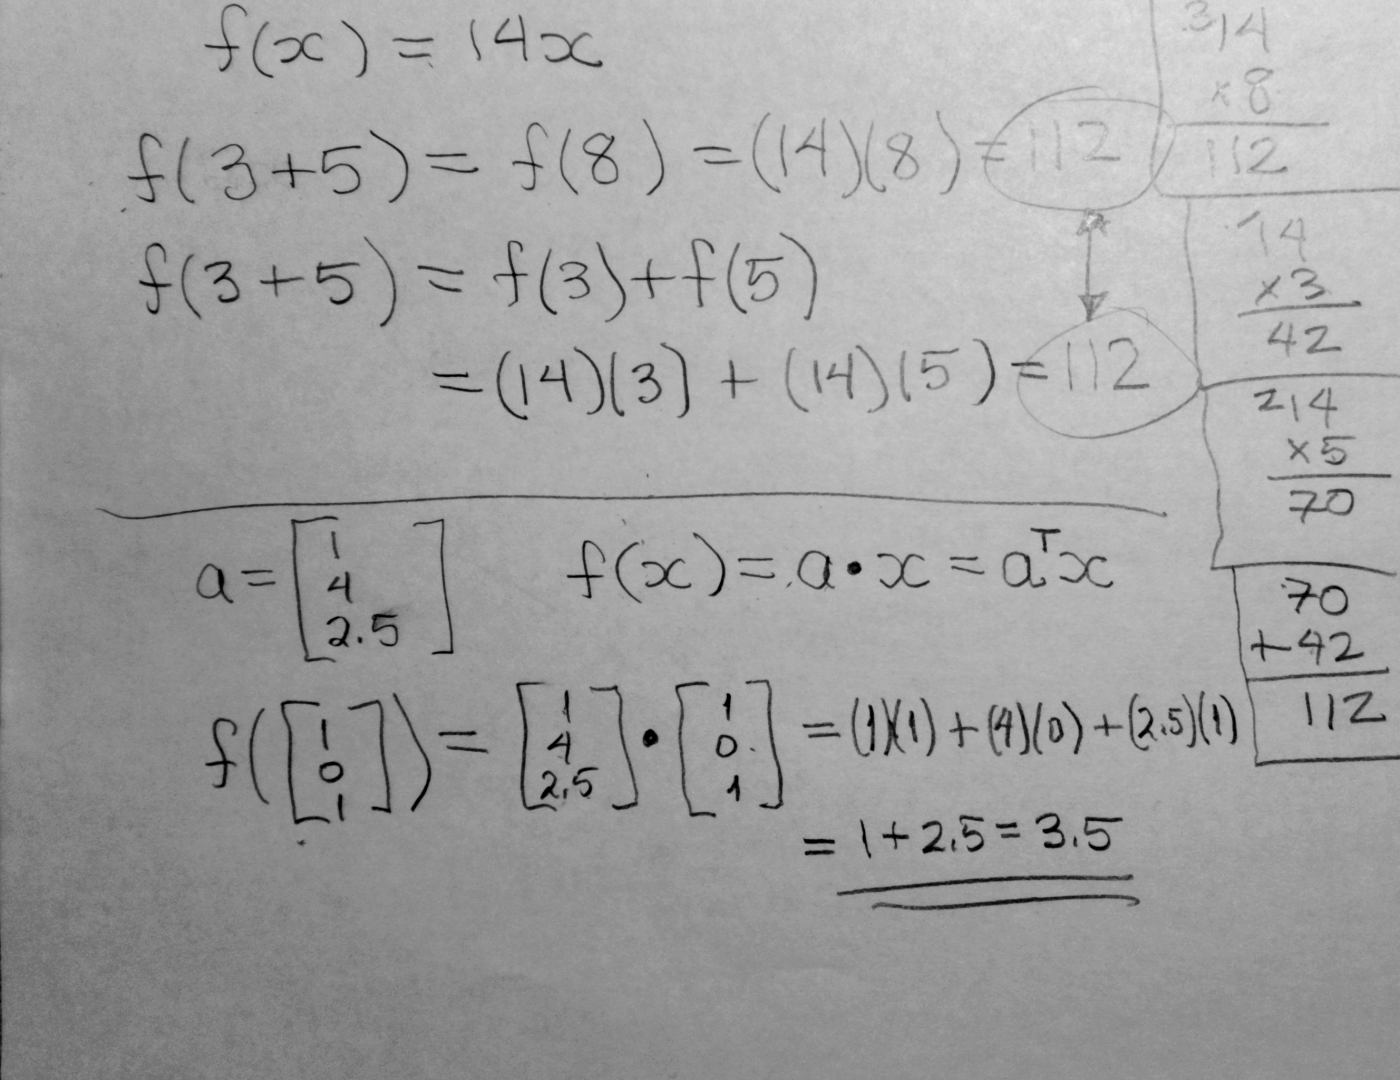 f(x) = 14x
f(3+5) = f(8) = (14)(8) = 112
f(3+5) = f(3)+f(5)
= (14)(3) + (14)(5) = 112
314
×8
112
14
×3
42
214
×5
70
70
+42
112
a = [1 4 2.5] f(x) = a•x = aᵀx
f([1 0 1]) = [1 4 2.5] • [1 0 1] = (1)(1) + (4)(0) + (2.5)(1)
= 1+2.5 = 3.5